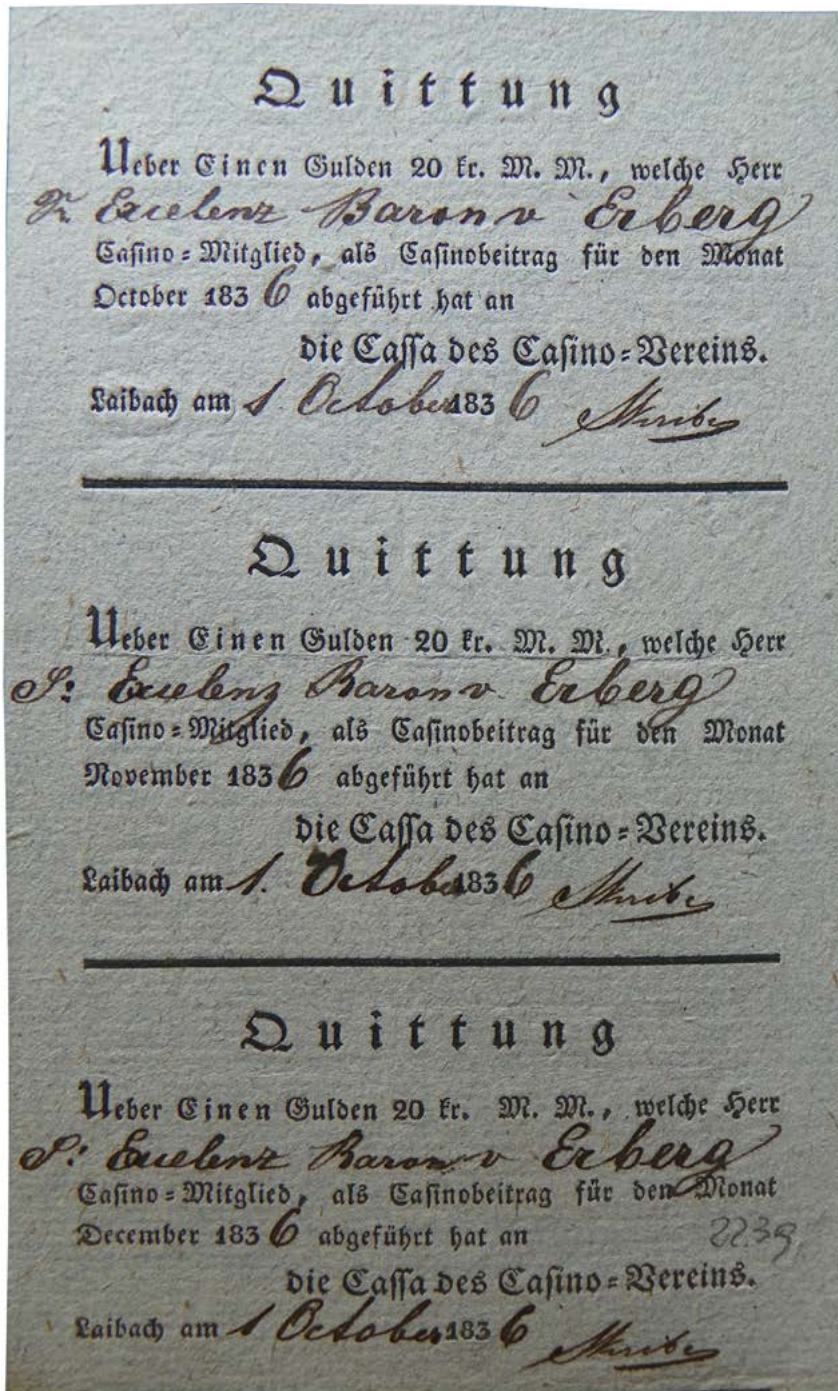 Quittung
Ueber Einen Gulden 20 kr. M. M., welche Herr
Excelenz Baron v Erberg
Casino=Mitglied, als Casinobeitrag für den Monat
October 1836 abgeführt hat an
die Cassa des Casino=Vereins.
Laibach am 1 October 1836
Quittung
Ueber Einen Gulden 20 kr. M. M., welche Herr
S: Excelenz Baron v. Erberg
Casino=Mitglied, als Casinobeitrag für den Monat
November 1836 abgeführt hat an
die Cassa des Casino=Vereins.
Laibach am 1. October 1836
Quittung
Ueber Einen Gulden 20 kr. M. M., welche Herr
S: Excelenz Baron v Erberg
Casino=Mitglied, als Casinobeitrag für den Monat
December 1836 abgeführt hat an
2239
die Cassa des Casino=Vereins.
Laibach am 1 October 1836